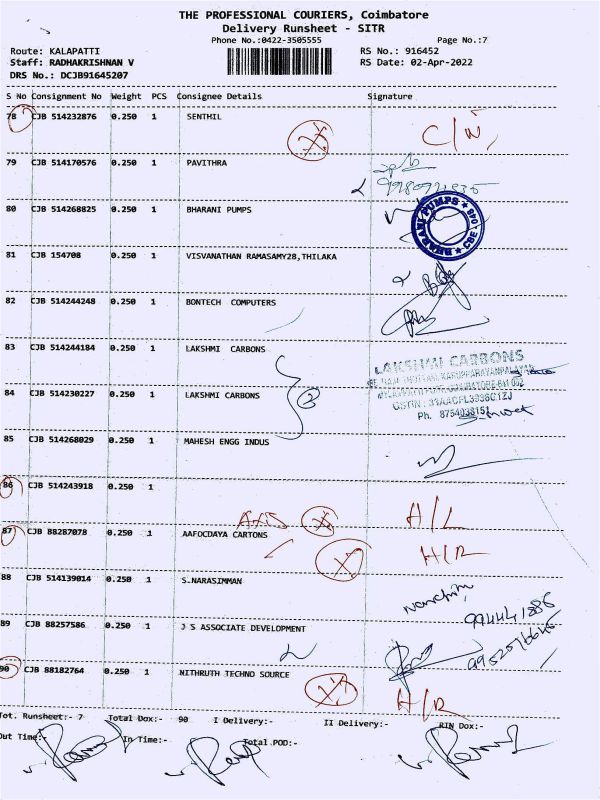 THE PROFESSIONAL COURIERS, Coimbatore
Delivery Runsheet - SITR
Phone No.:0422-3505555 Page No.:7
Route: KALAPATTI RS No.: 916452
Staff: RADHAKRISHNAN V RS Date: 02-Apr-2022
DRS No.: DCJB91645207
S No Consignment No Weight PCS Consignee Details Signature
78 CJB 514232876 0.250 1 SENTHIL
79 CJB 514170576 0.250 1 PAVITHRA
80 CJB 514268825 0.250 1 BHARANI PUMPS
BHARANI PUMPS CBE
81 CJB 154708 0.250 1 VISVANATHAN RAMASAMY28,THILAKA
82 CJB 514244248 0.250 1 BONTECH COMPUTERS
83 CJB 514244184 0.250 1 LAKSHMI CARBONS
LAKSHMI CARBONS
84 CJB 514230227 0.250 1 LAKSHMI CARBONS
2
Ph. 8754038151
85 CJB 514268029 0.250 1 MAHESH ENGG INDUS
86 CJB 514243918 0.250 1
AXIS H/L
87 CJB 88287078 0.250 1 AAFOCDAYA CARTONS
H/R
88 CJB 514139014 0.250 1 S.NARASIMMAN
89 CJB 88257586 0.250 1 J S ASSOCIATE DEVELOPMENT
90 CJB 88182764 0.250 1 NITHRUTH TECHNO SOURCE
H/R
Tot. Runsheet:- 7 Total Dox:- 90 I Delivery:- II Delivery:- RTN Dox:-
Out Time:- In Time:- Total POD:-